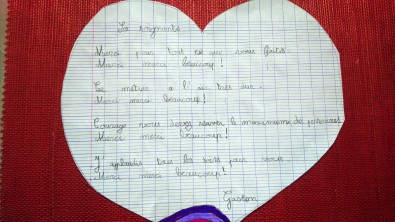 Les soignants
Merci pour tout ce que vous faites
Merci merci beaucoup !
Ce métier a l'air très dur.
Merci merci beaucoup !
Courage vous devez sauver le maximum de personnes
Merci merci beaucoup !
J'applaudis tous les soirs pour vous
Merci merci beaucoup !
Gaston